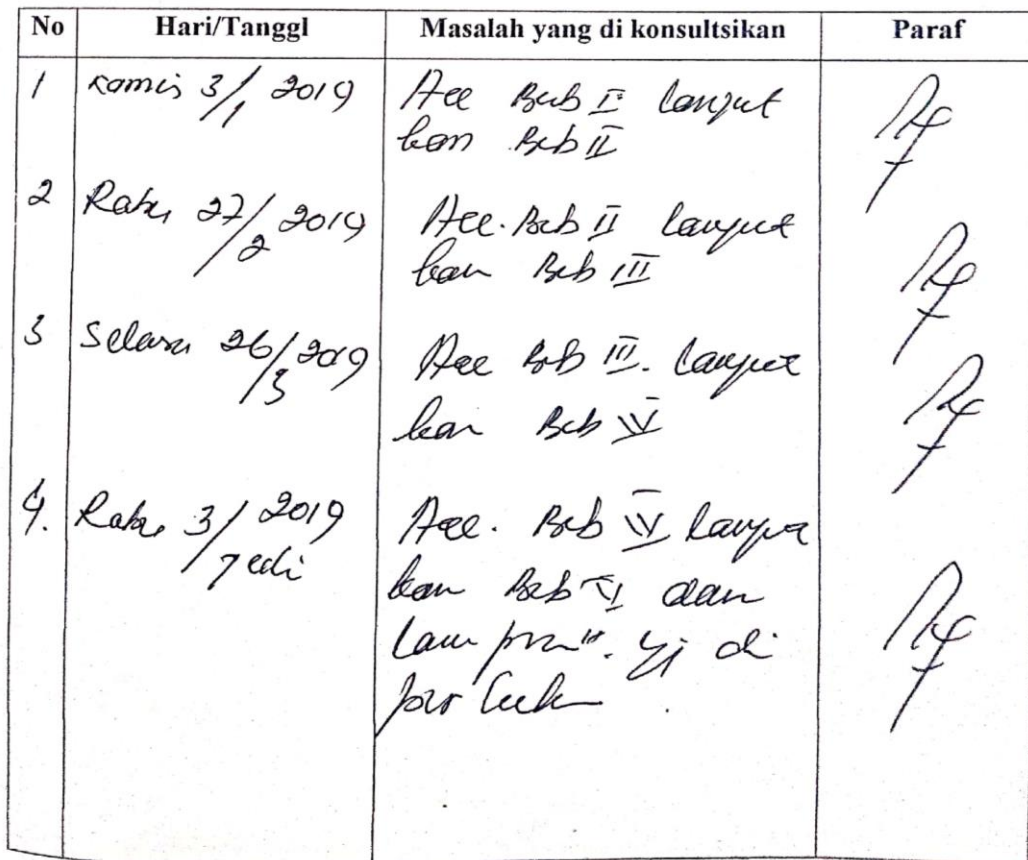 No Hari/Tanggl Masalah yang di konsultsikan Paraf
1 Kamis 3/1 2019 Acc Bab I lanjut
kan Bab II
2 Rabu 27/2 2019 Acc. Bab II lanjut
kan Bab III
3 Selasa 26/3 2019 Acc Bab III. lanjut
kan Bab IV
4. Rabu 3/7 2019 Acc. Bab IV lanjut
kan Bab dan
di